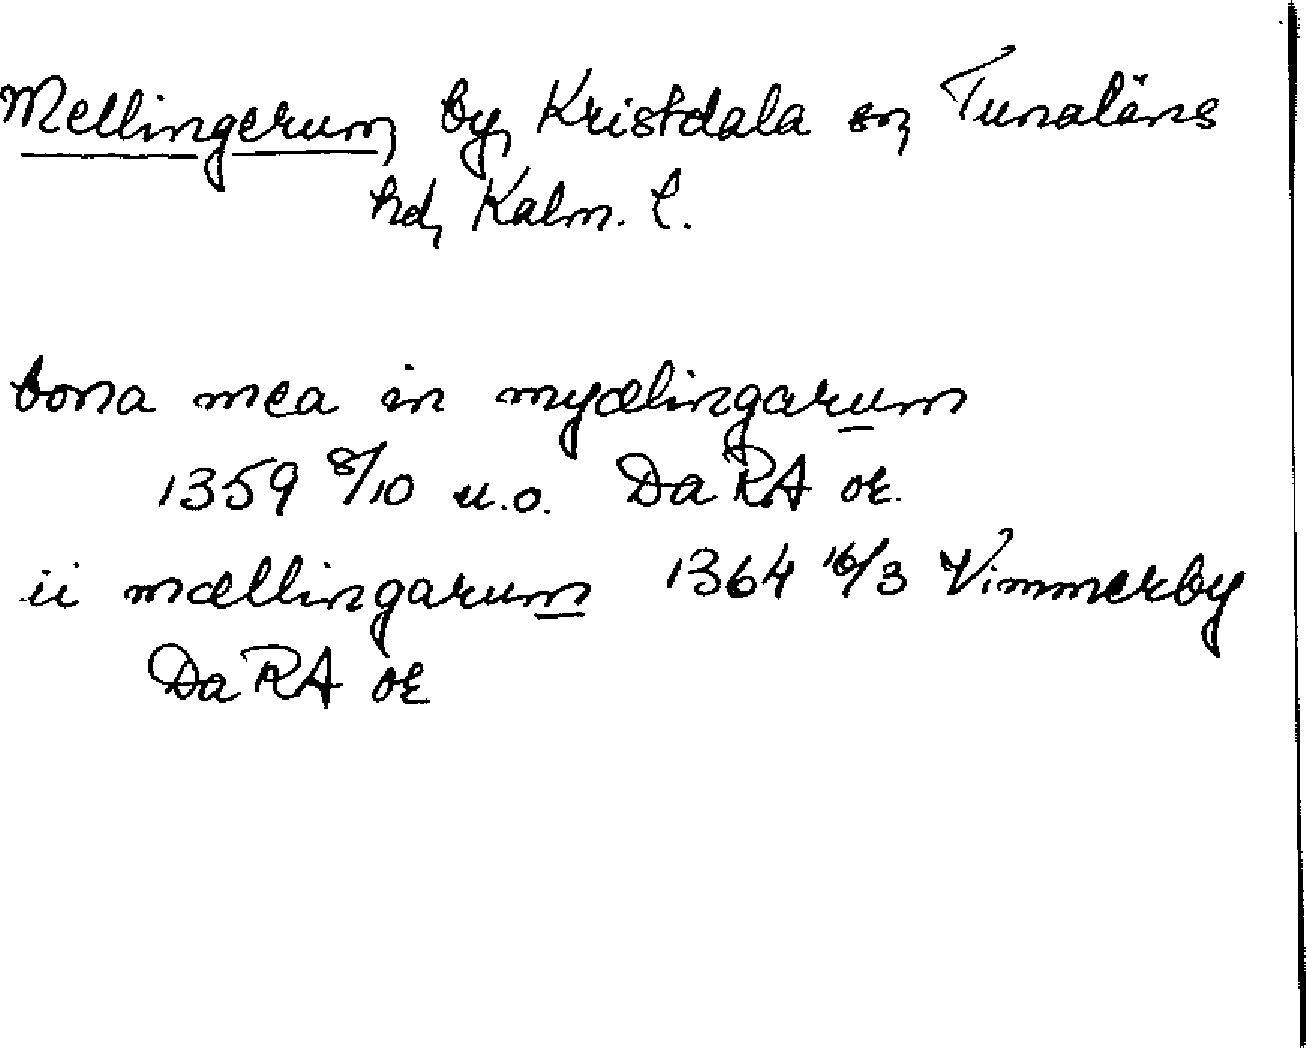 Mellingerum, by, Kristdala sn, Tunaläns
hd, Kalm. l.
bona mea in myælingarum
1359 8/10 u.o. DaRA or.
ii mællingarum 1364 16/3 Vimmerby
DaRA or